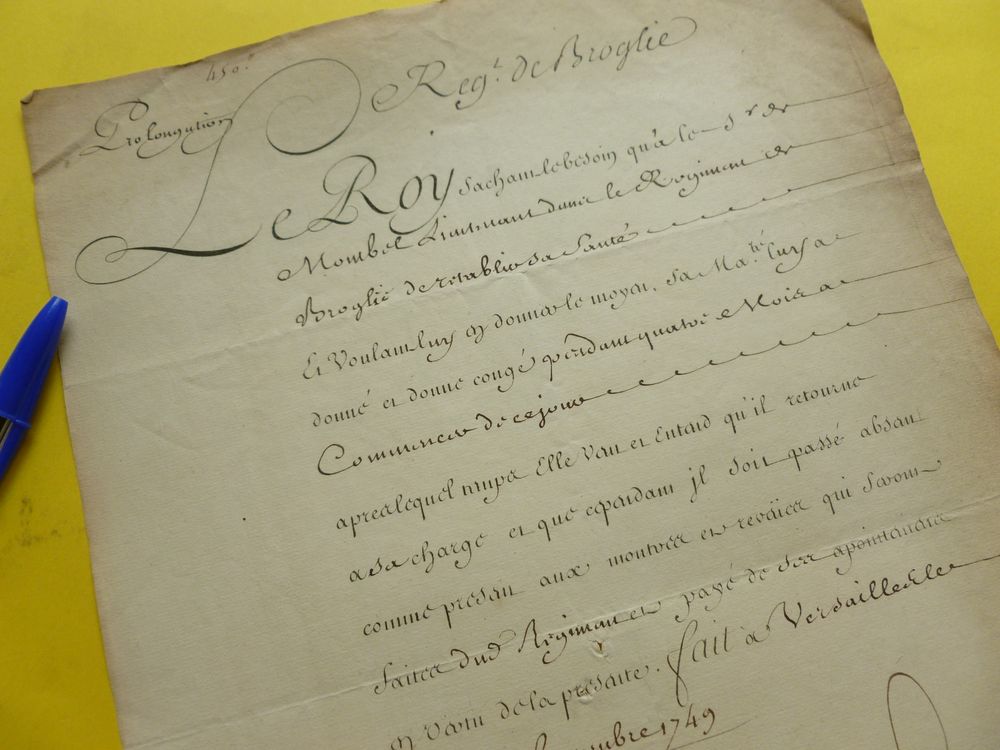 450.
Prolongation
Regt. de Broglie
Le Roy sachant le besoin qu'a le Sr de
Mombel Lieutenant dans le Regiment de
Broglie de retablir sa Santé
Et Voulant luy en donner le moyen, sa Maté luy a
donné et donne congé pendant quatre Mois a
Commencer de ce jour
apres lequel temps Elle Veut et Entend qu'il retourne
a sa charge et que cependant jl soit passé absent
comme present aux montres et reveües qui seront
faites dud Regiment et payé de ses apointemens
en vertu de la presente. fait à Versailles le
1749